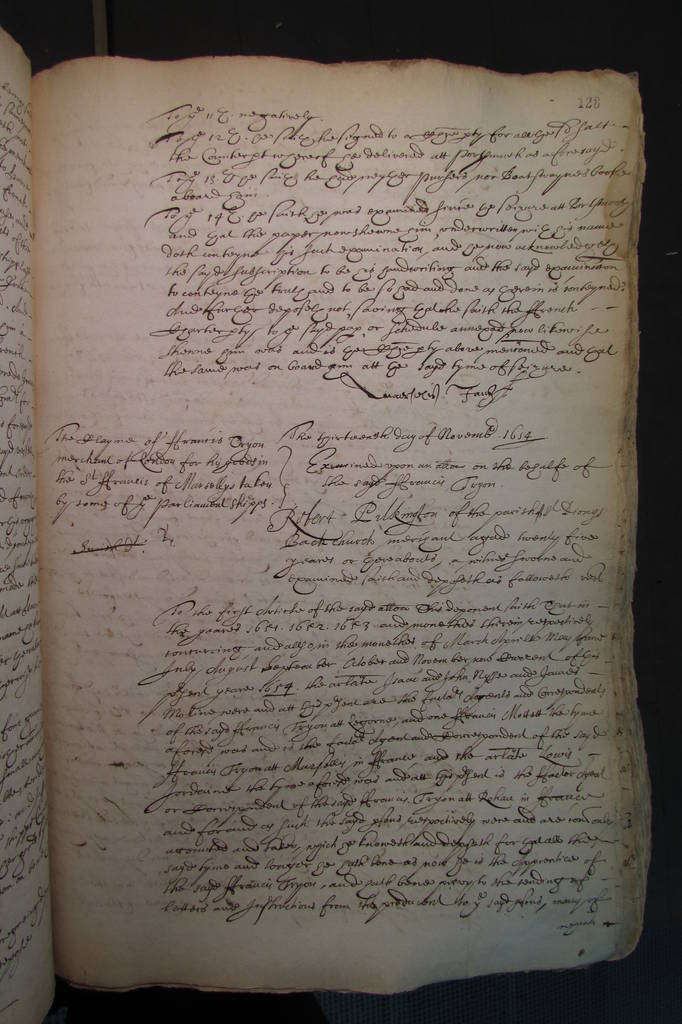 128
To the 11th. negatively.
To the 12th. hee saith he signed to a Charter pty for all the sd salt
the Counterpt whereof he delivered att Portsmouth as aforesayd.
To the 13. hee saith he had neyther Pursers nor Boatswaynes booke
aboard him.
To the 14th hee saith he was examined since the seizure att Portsmouth
and that the paper now shewne him underwritten with his name
doth conteyne his such examination, and he now acknowledgeth
the sayd subscription to be his handwriting and the said examination
to conteyne the truth and to be so had and done as therein is conteyned
And further deposeth not, saving that he saith the ffrench
Charter pty to the sayd pap or schedule annexed now likewise
shewne him was and is the Charter pty above mentioned and that
the same was on board him att the sayd tyme of seizure.
The Clayme of ffrancis Tryon
merchant of London for his goods in
the St ffrancis of Marsellys taken
by some of the Parliament shipps.
The thirteenth day of Novemb. 1654
Examined upon an allon on the behalfe of
the sayd ffrancis Tryon.
Robert Pilkington of the parish of St Dionys
Backchurch merchant aged twenty five
yeares or thereabouts, a witnes sworne and
examined saith and deposeth as followeth vizt
To the first Article of the sayd allon this deponent saith That in
the yeares 1651. 1652. 1653. and moneths therein respectively
concurring and allso in the moneths of March Aprill May June
July August September October and November now Current of this
psent yeare 1654. the arlate Isaac and John and James
were and att this psent are the factors Agents and Correspondents
of the sayd ffrancis Tryon att Legorne, and one ffrancis Mollett the tyme
aforesd was and is the factor Agent and Correspondent of the sayd
ffrancis Tryon att Marselly in ffrance and the arlate Lewis
Jordainet the tyme aforesd was and att this psent is the factor Agent
or Correspondent of the sayd ffrancis Tryon att Rohan in ffrance
and for and as such the sayd psons respectively were and are comonly
accounted and taken, which he knoweth and deposeth for that all the
sayd tyme and longer he hath bene as now he is the Apprentice of
the sayd ffrancis Tryon, and hath bene privy to the sending of
letters and Instructions from the producent to the sayd psons, many of